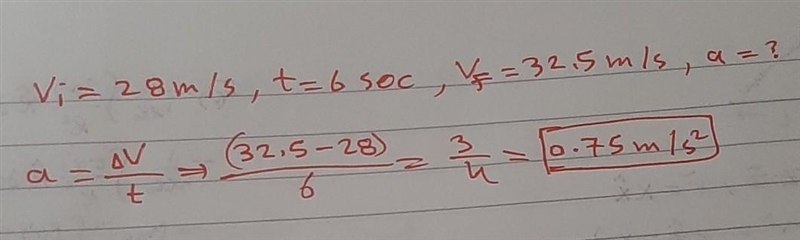 Vi = 28 m/s, t = 6 sec, VF = 32.5 m/s, a = ?
a = ΔV/t ⇒ (32.5 - 28)/6 = 3/4 = 0.75 m/s²